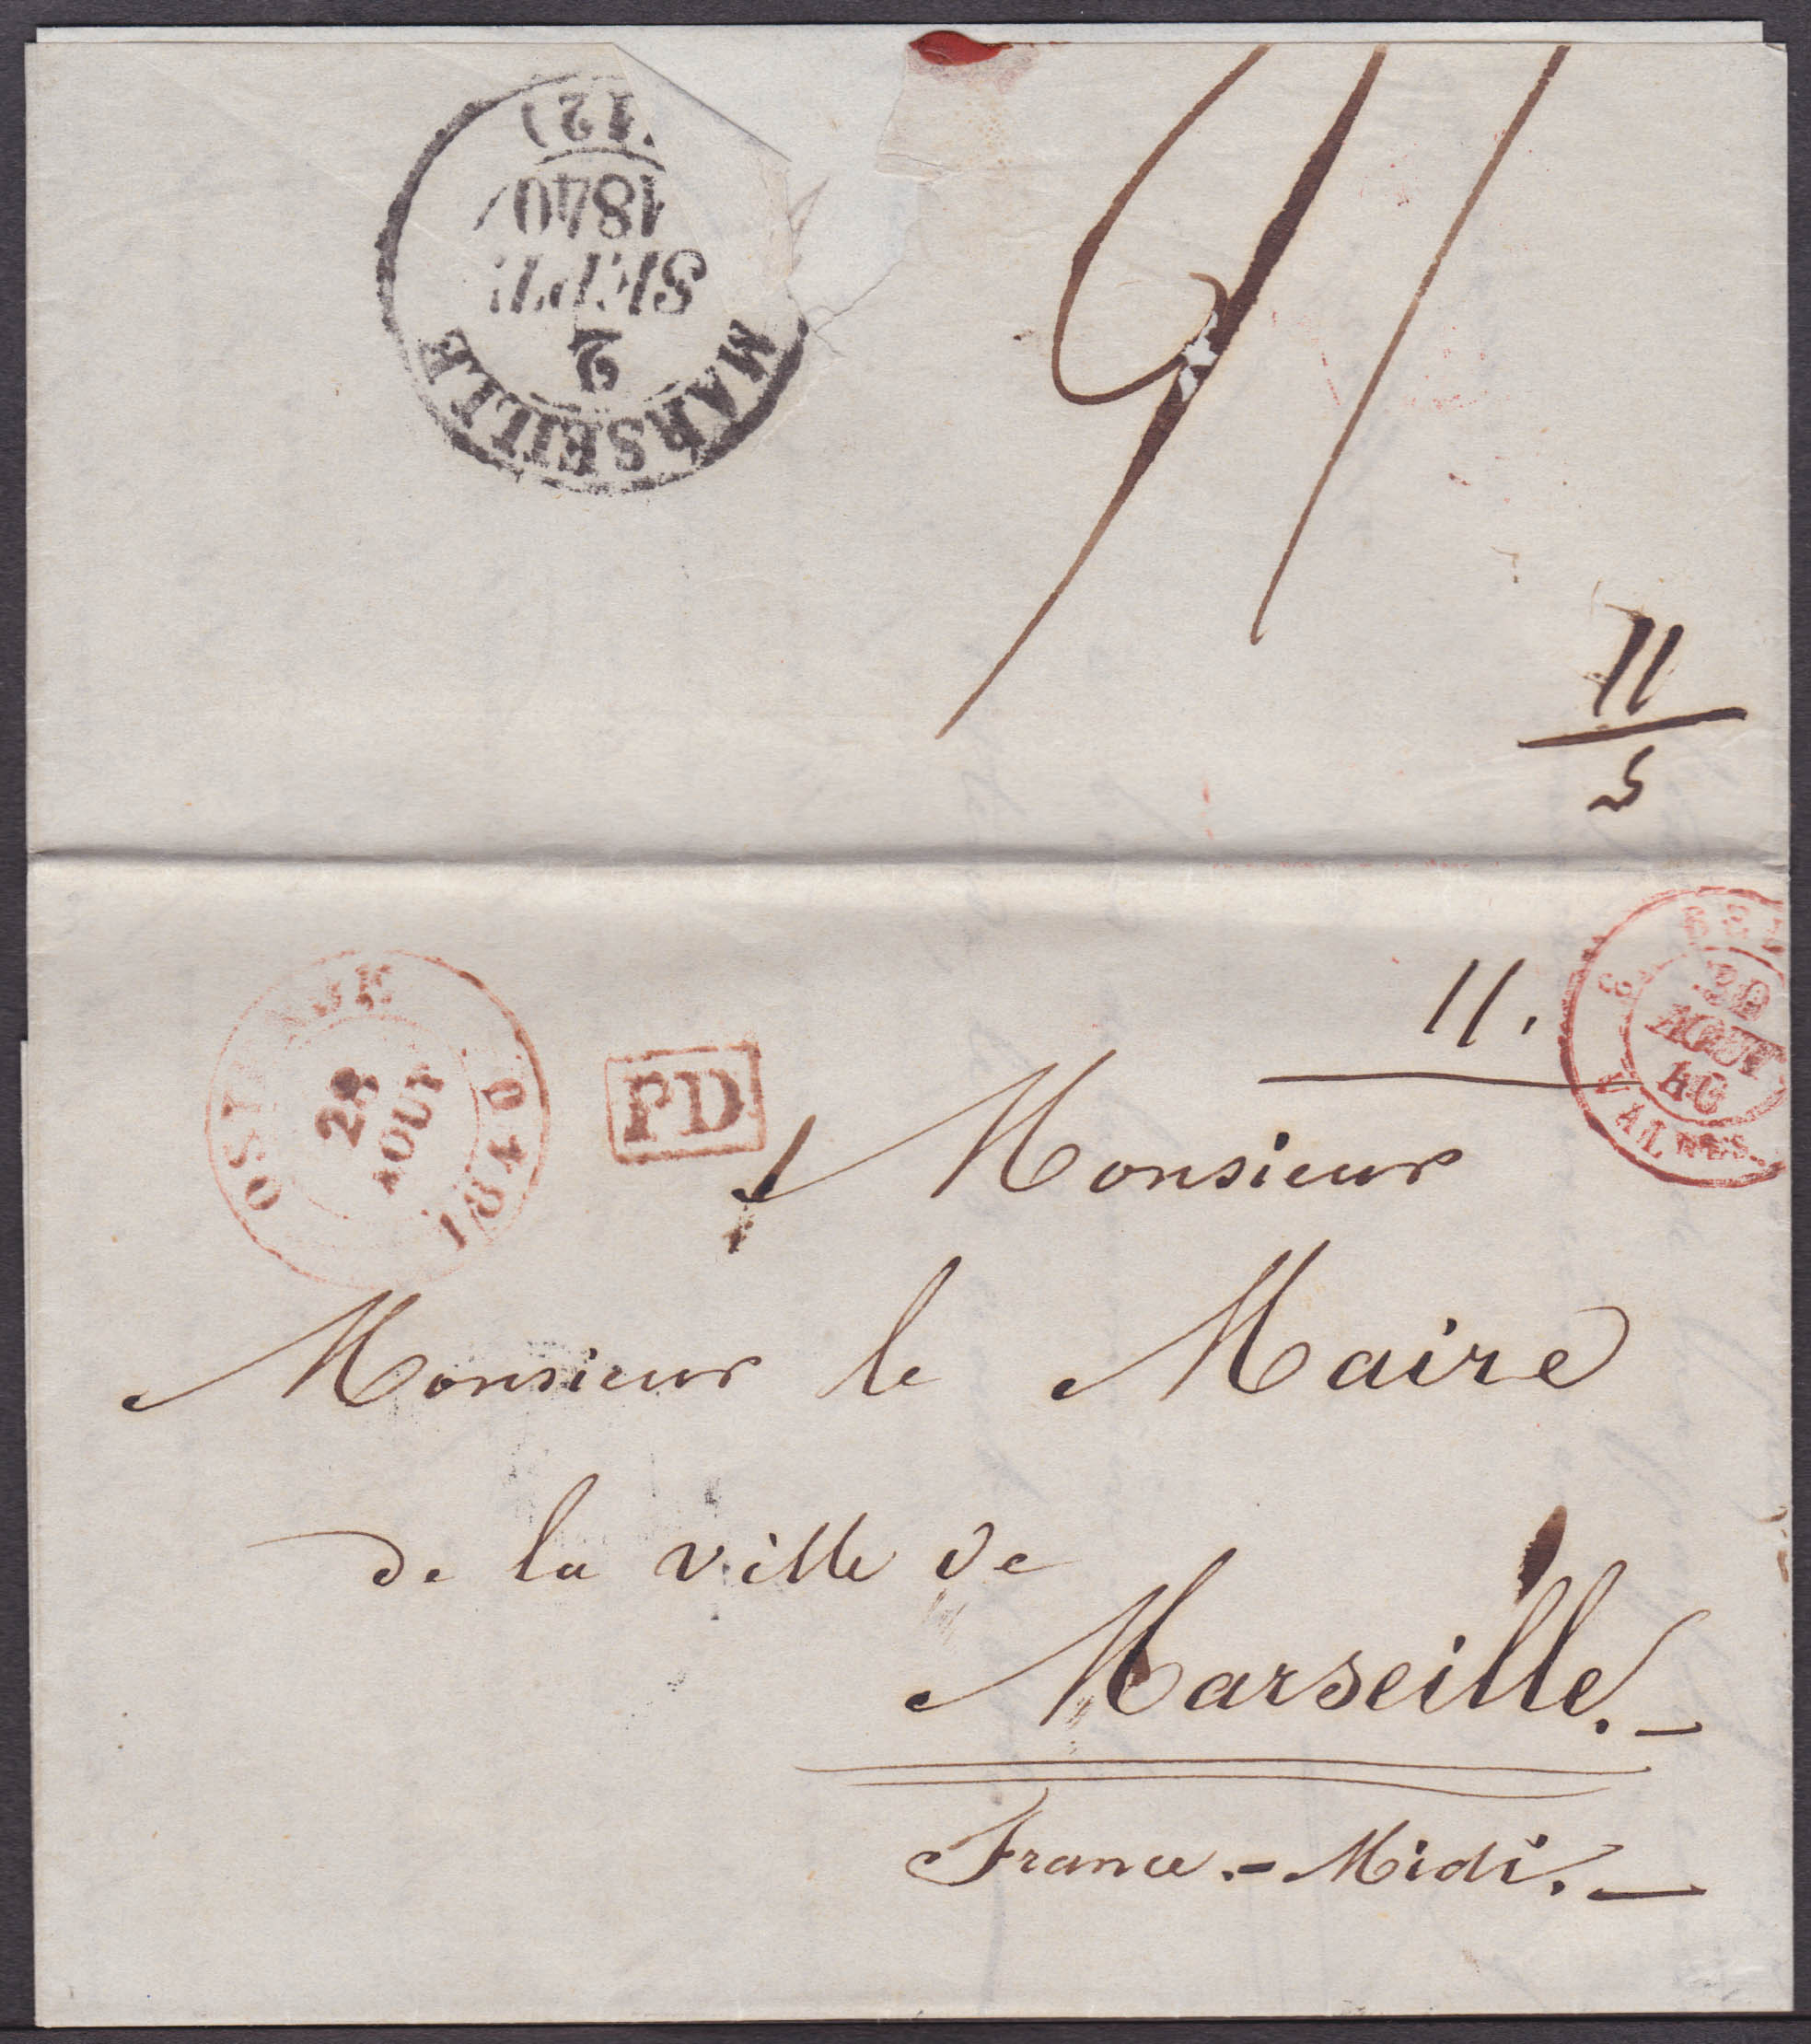 MARSEILLE
2
SEPT.
1840
(12)
91
11
5
OSTENDE
28
AOUT
1840
PD
11.
BEL
30
AOUT
40
VALNES
Monsieur
Monsieur le Maire
de la ville de
Marseille.
France. - Midi.